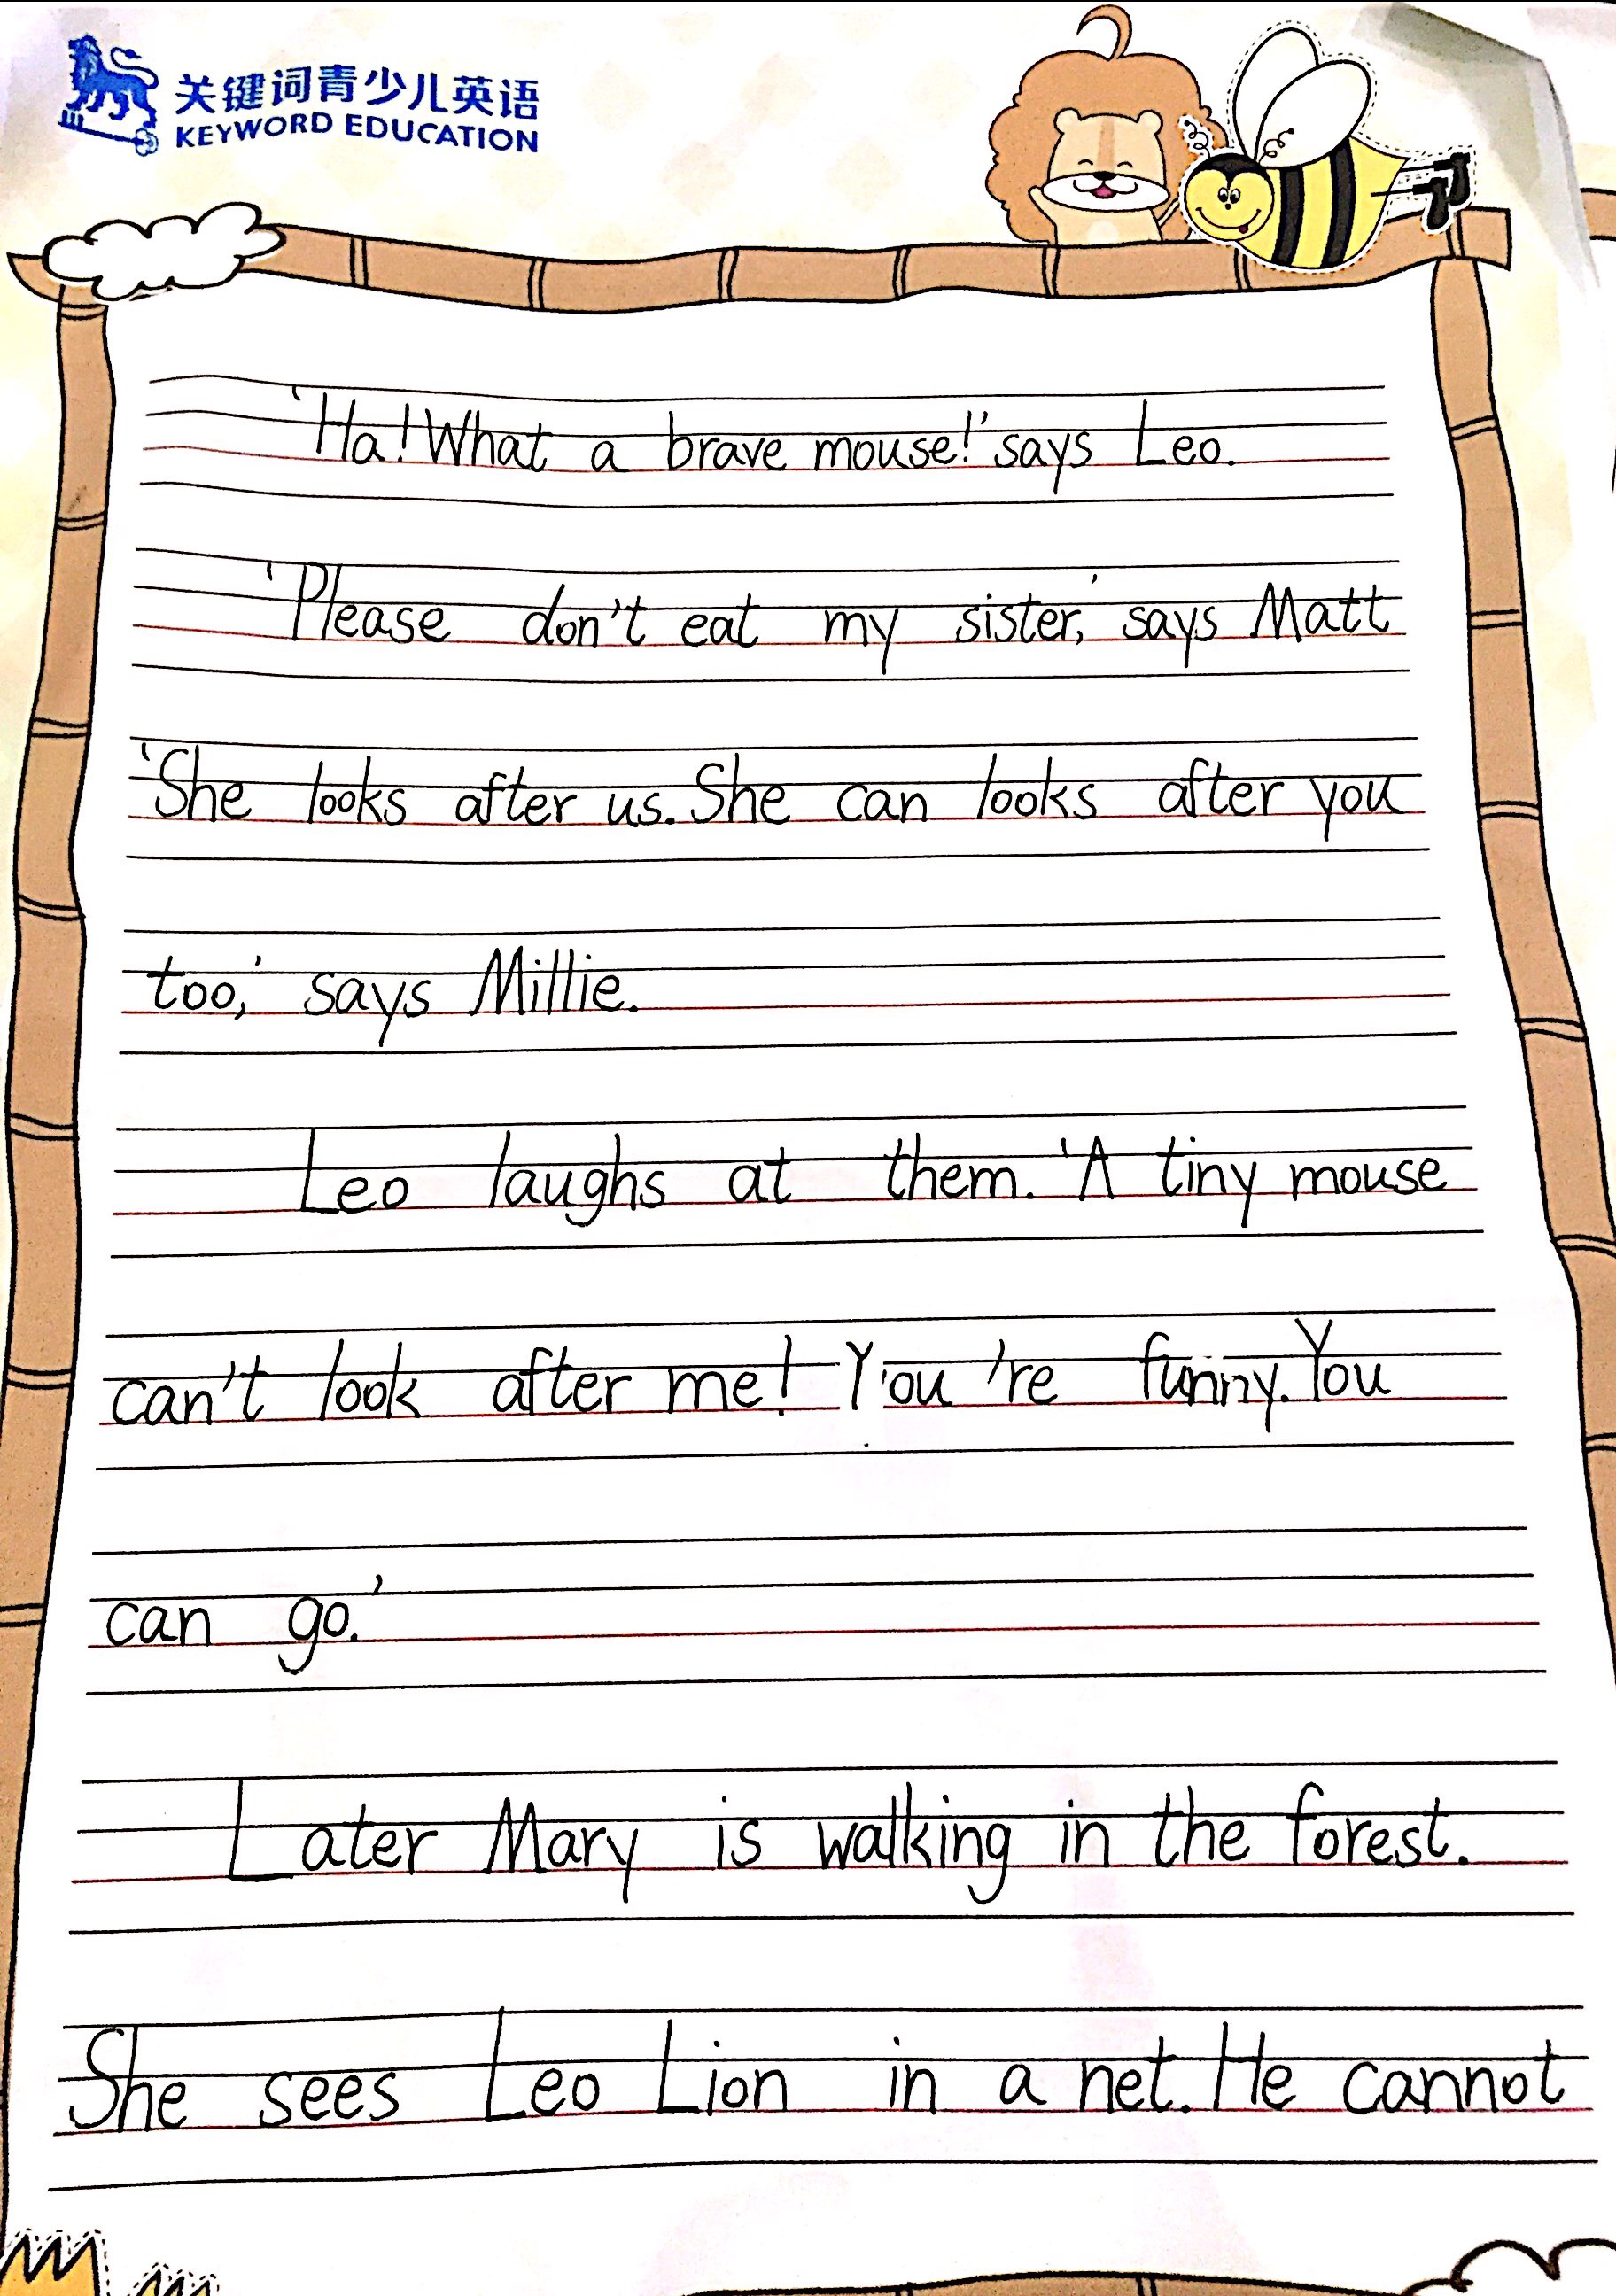 关键词青少儿英语
KEYWORD EDUCATION
'Ha! What a brave mouse!' says Leo.
'Please don't eat my sister,' says Matt
'She looks after us. She can looks after you
too,' says Millie.
Leo laughs at them. 'A tiny mouse
can't look after me! You're funny. You
can go.'
Later Mary is walking in the forest.
She sees Leo Lion in a net. He cannot